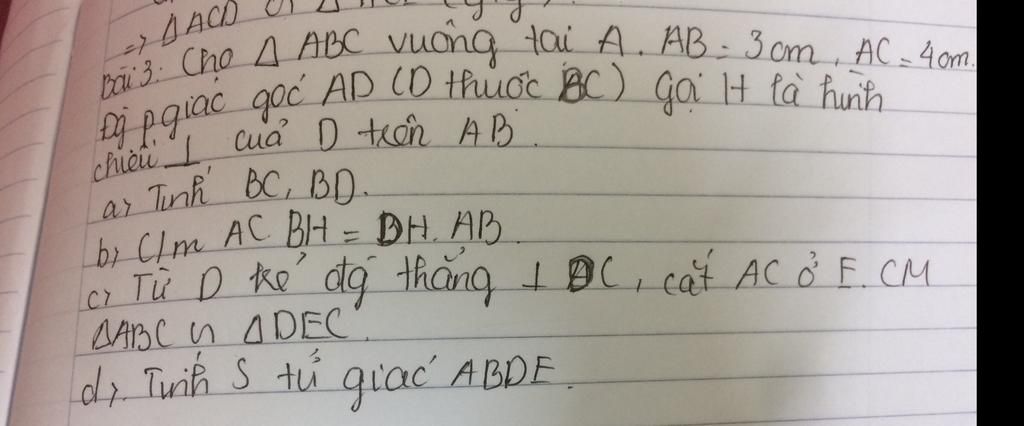 => ΔACD
Bài 3: Cho Δ ABC vuông tại A. AB = 3cm, AC = 4cm.
Đg p.giác góc AD (D thuộc BC) Gọi H là hình
chiếu ⊥ của D trên AB.
a, Tính BC, BD.
b, C/m AC. BH = DH. AB.
c, Từ D kẻ đg thẳng ⊥ DC, cắt AC ở E. CM
ΔABC ∽ ΔDEC.
d, Tính S tứ giác ABDE.